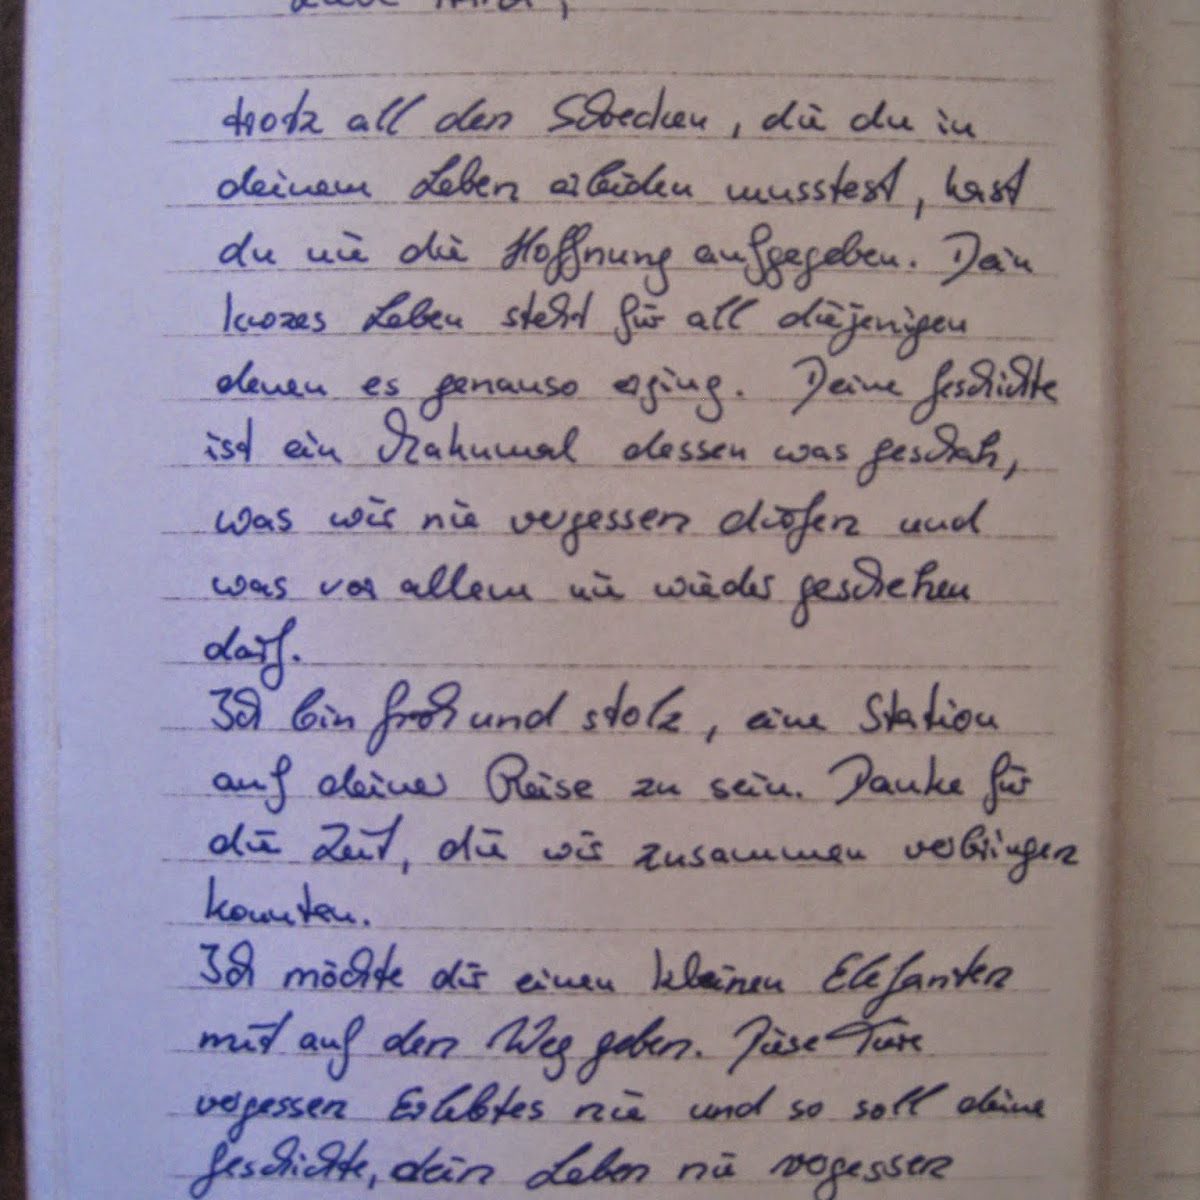 trotz all den Schrecken, die du in
deinem Leben erleiden musstest, hast
du nie die Hoffnung aufgegeben. Dein
kurzes Leben steht für all diejenigen
denen es genauso erging. Deine Geschichte
ist ein Mahnmal dessen was geschah,
was wir nie vergessen dürfen und
was vor allem nie wieder geschehen
darf.
Ich bin froh und stolz, eine Station
auf deiner Reise zu sein. Danke für
die Zeit, die wir zusammen verbringen
konnten.
Ich möchte dir einen kleinen Elefanten
mit auf den Weg geben. Diese Tiere
vergessen Erlebtes nie und so soll deine
Geschichte, dein Leben nie vergessen